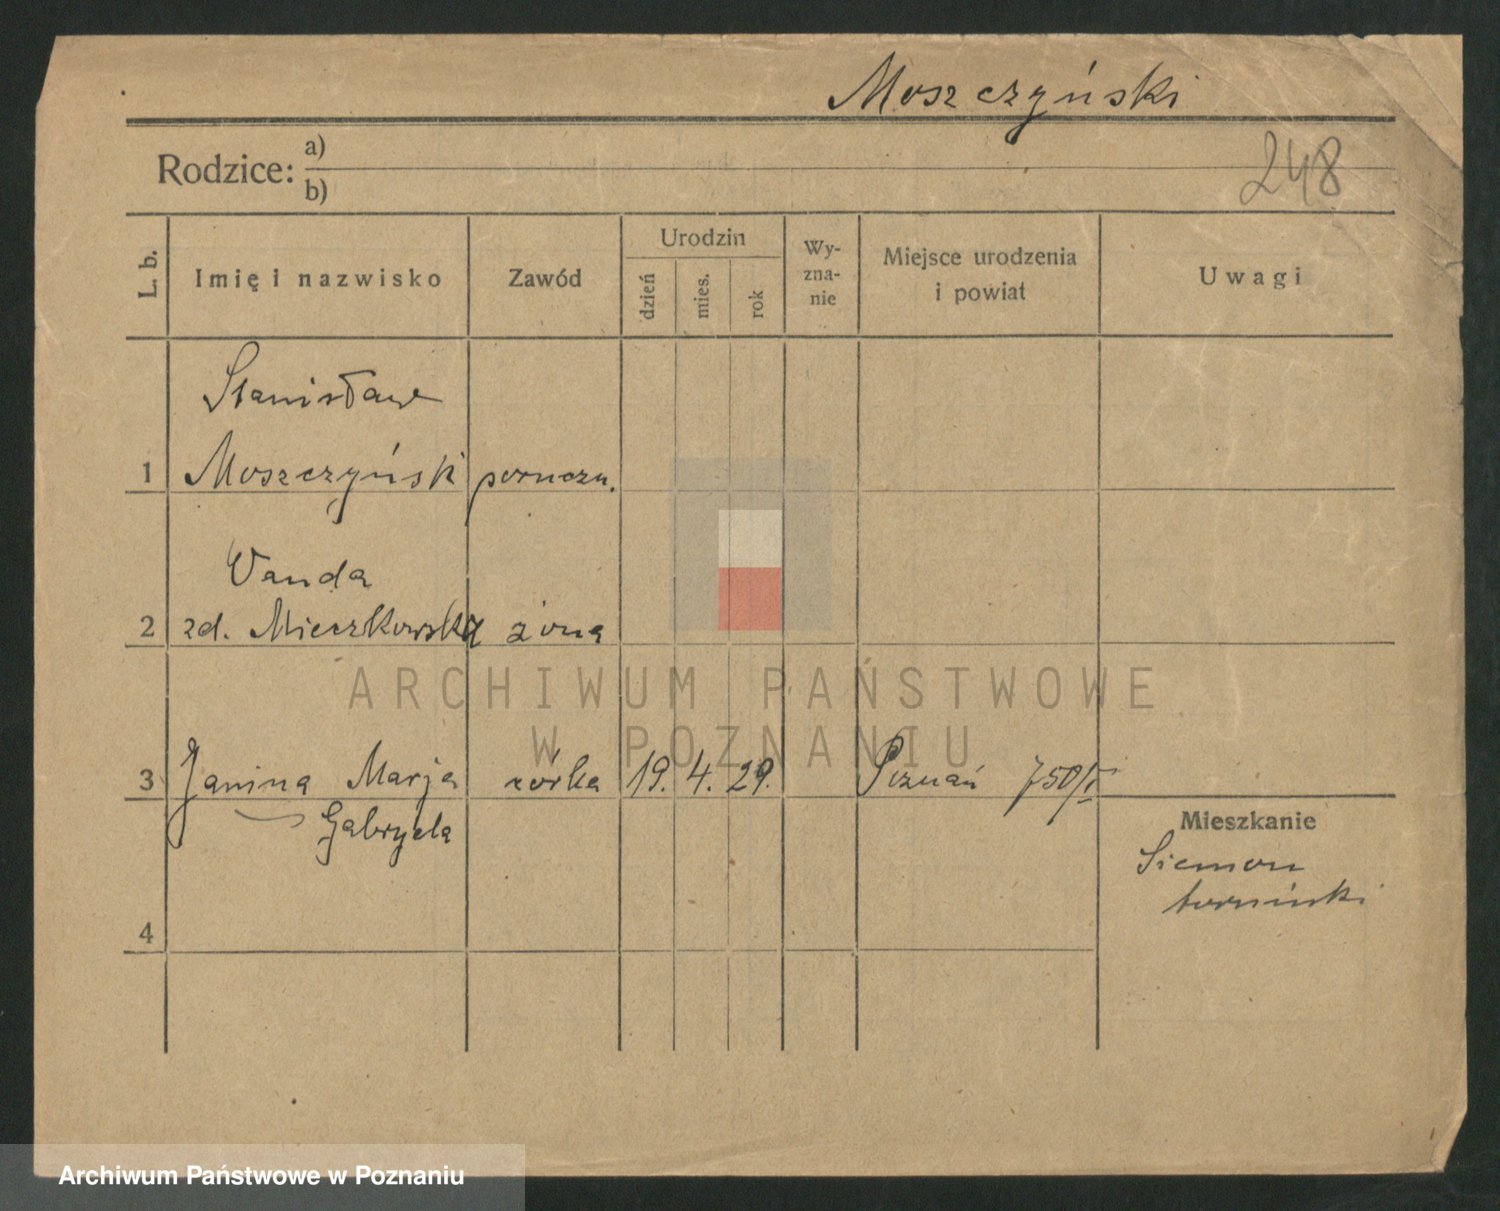 Moszczyński
248
Rodzice: a)
b)
L. b.
Imię i nazwisko
Zawód
Urodzin
dzień
mies.
rok
Wy-
zna-
nie
Miejsce urodzenia
i powiat
Uwagi
Stanisław
1 Moszczyński poruczn.
Wanda
2 zd. Mieczkowska żona
ARCHIWUM PAŃSTWOWE
W POZNANIU
3 Janina Marja córka 19. 4. 29. Poznań 750/V
Gabryela
Mieszkanie
4
Archiwum Państwowe w Poznaniu